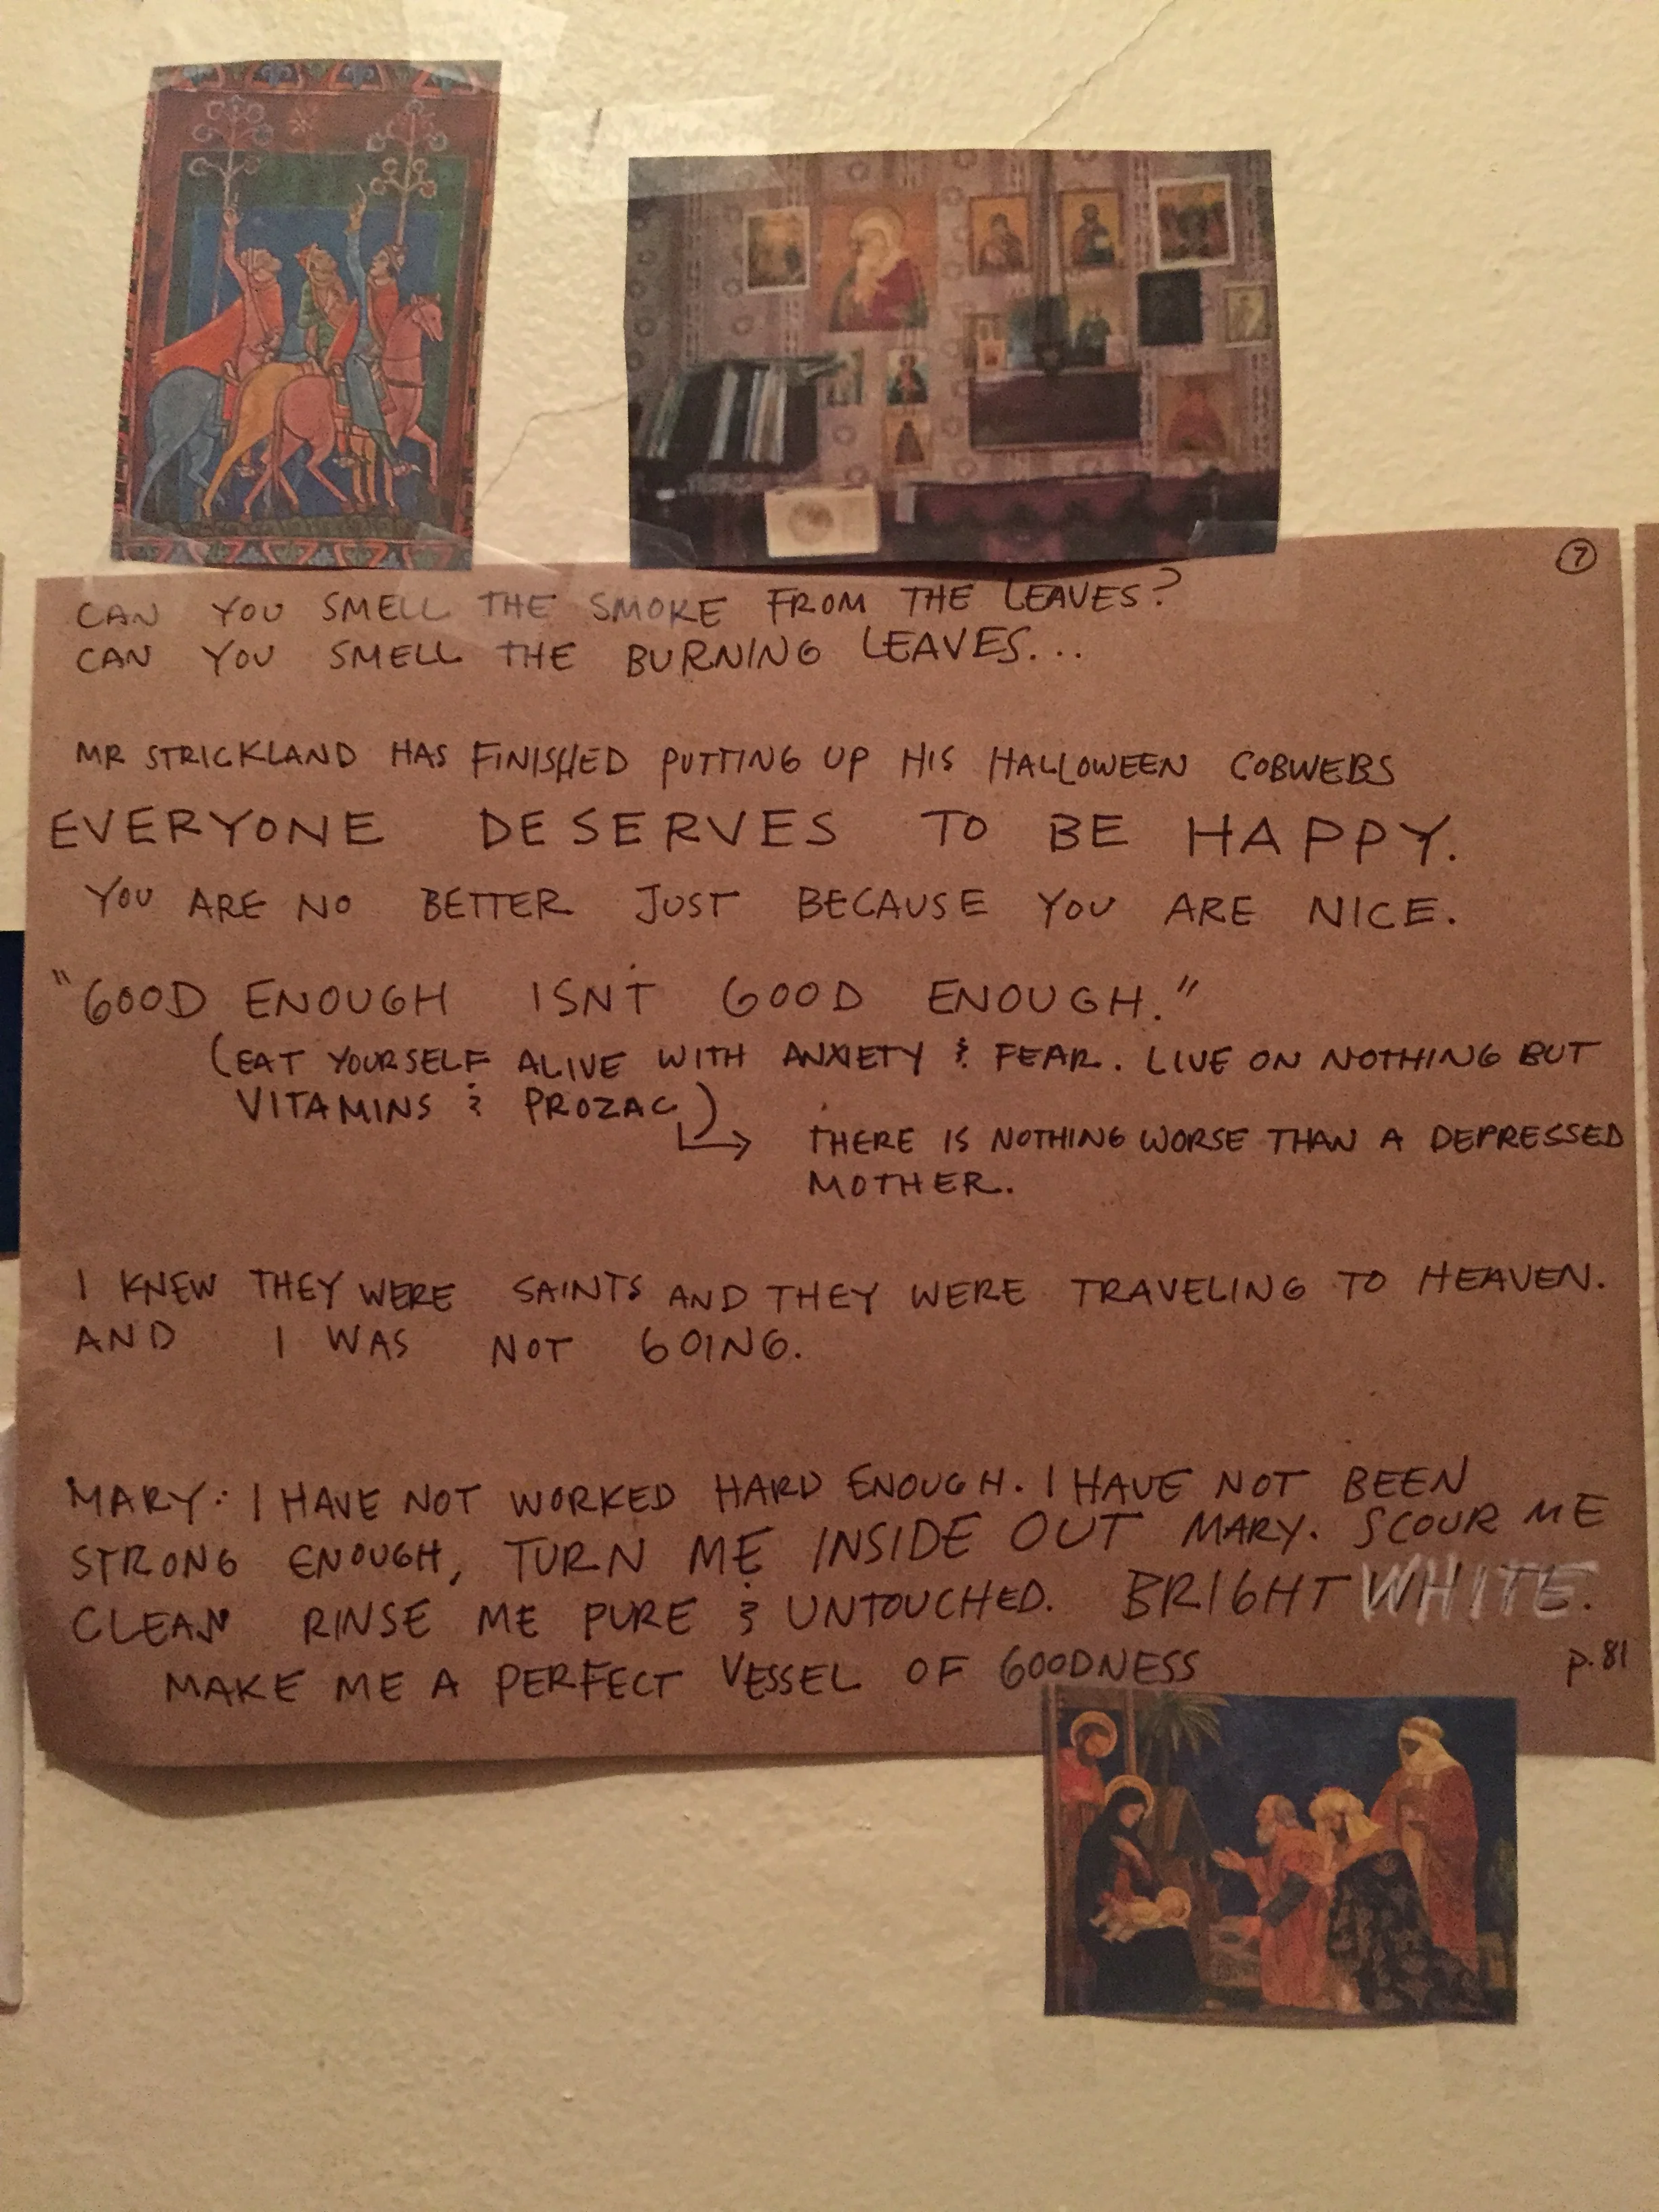 7
CAN YOU SMELL THE SMOKE FROM THE LEAVES?
CAN YOU SMELL THE BURNING LEAVES...
MR STRICKLAND HAS FINISHED PUTTING UP HIS HALLOWEEN COBWEBS
EVERYONE DESERVES TO BE HAPPY.
YOU ARE NO BETTER JUST BECAUSE YOU ARE NICE.
"GOOD ENOUGH ISN'T GOOD ENOUGH."
(EAT YOURSELF ALIVE WITH ANXIETY & FEAR. LIVE ON NOTHING BUT
VITAMINS & PROZAC)
↳ THERE IS NOTHING WORSE THAN A DEPRESSED
MOTHER.
I KNEW THEY WERE SAINTS AND THEY WERE TRAVELING TO HEAVEN.
AND I WAS NOT GOING.
MARY: I HAVE NOT WORKED HARD ENOUGH. I HAVE NOT BEEN
STRONG ENOUGH, TURN ME INSIDE OUT MARY. SCOUR ME
CLEAN RINSE ME PURE & UNTOUCHED. BRIGHT WHITE.
MAKE ME A PERFECT VESSEL OF GOODNESS
p.81